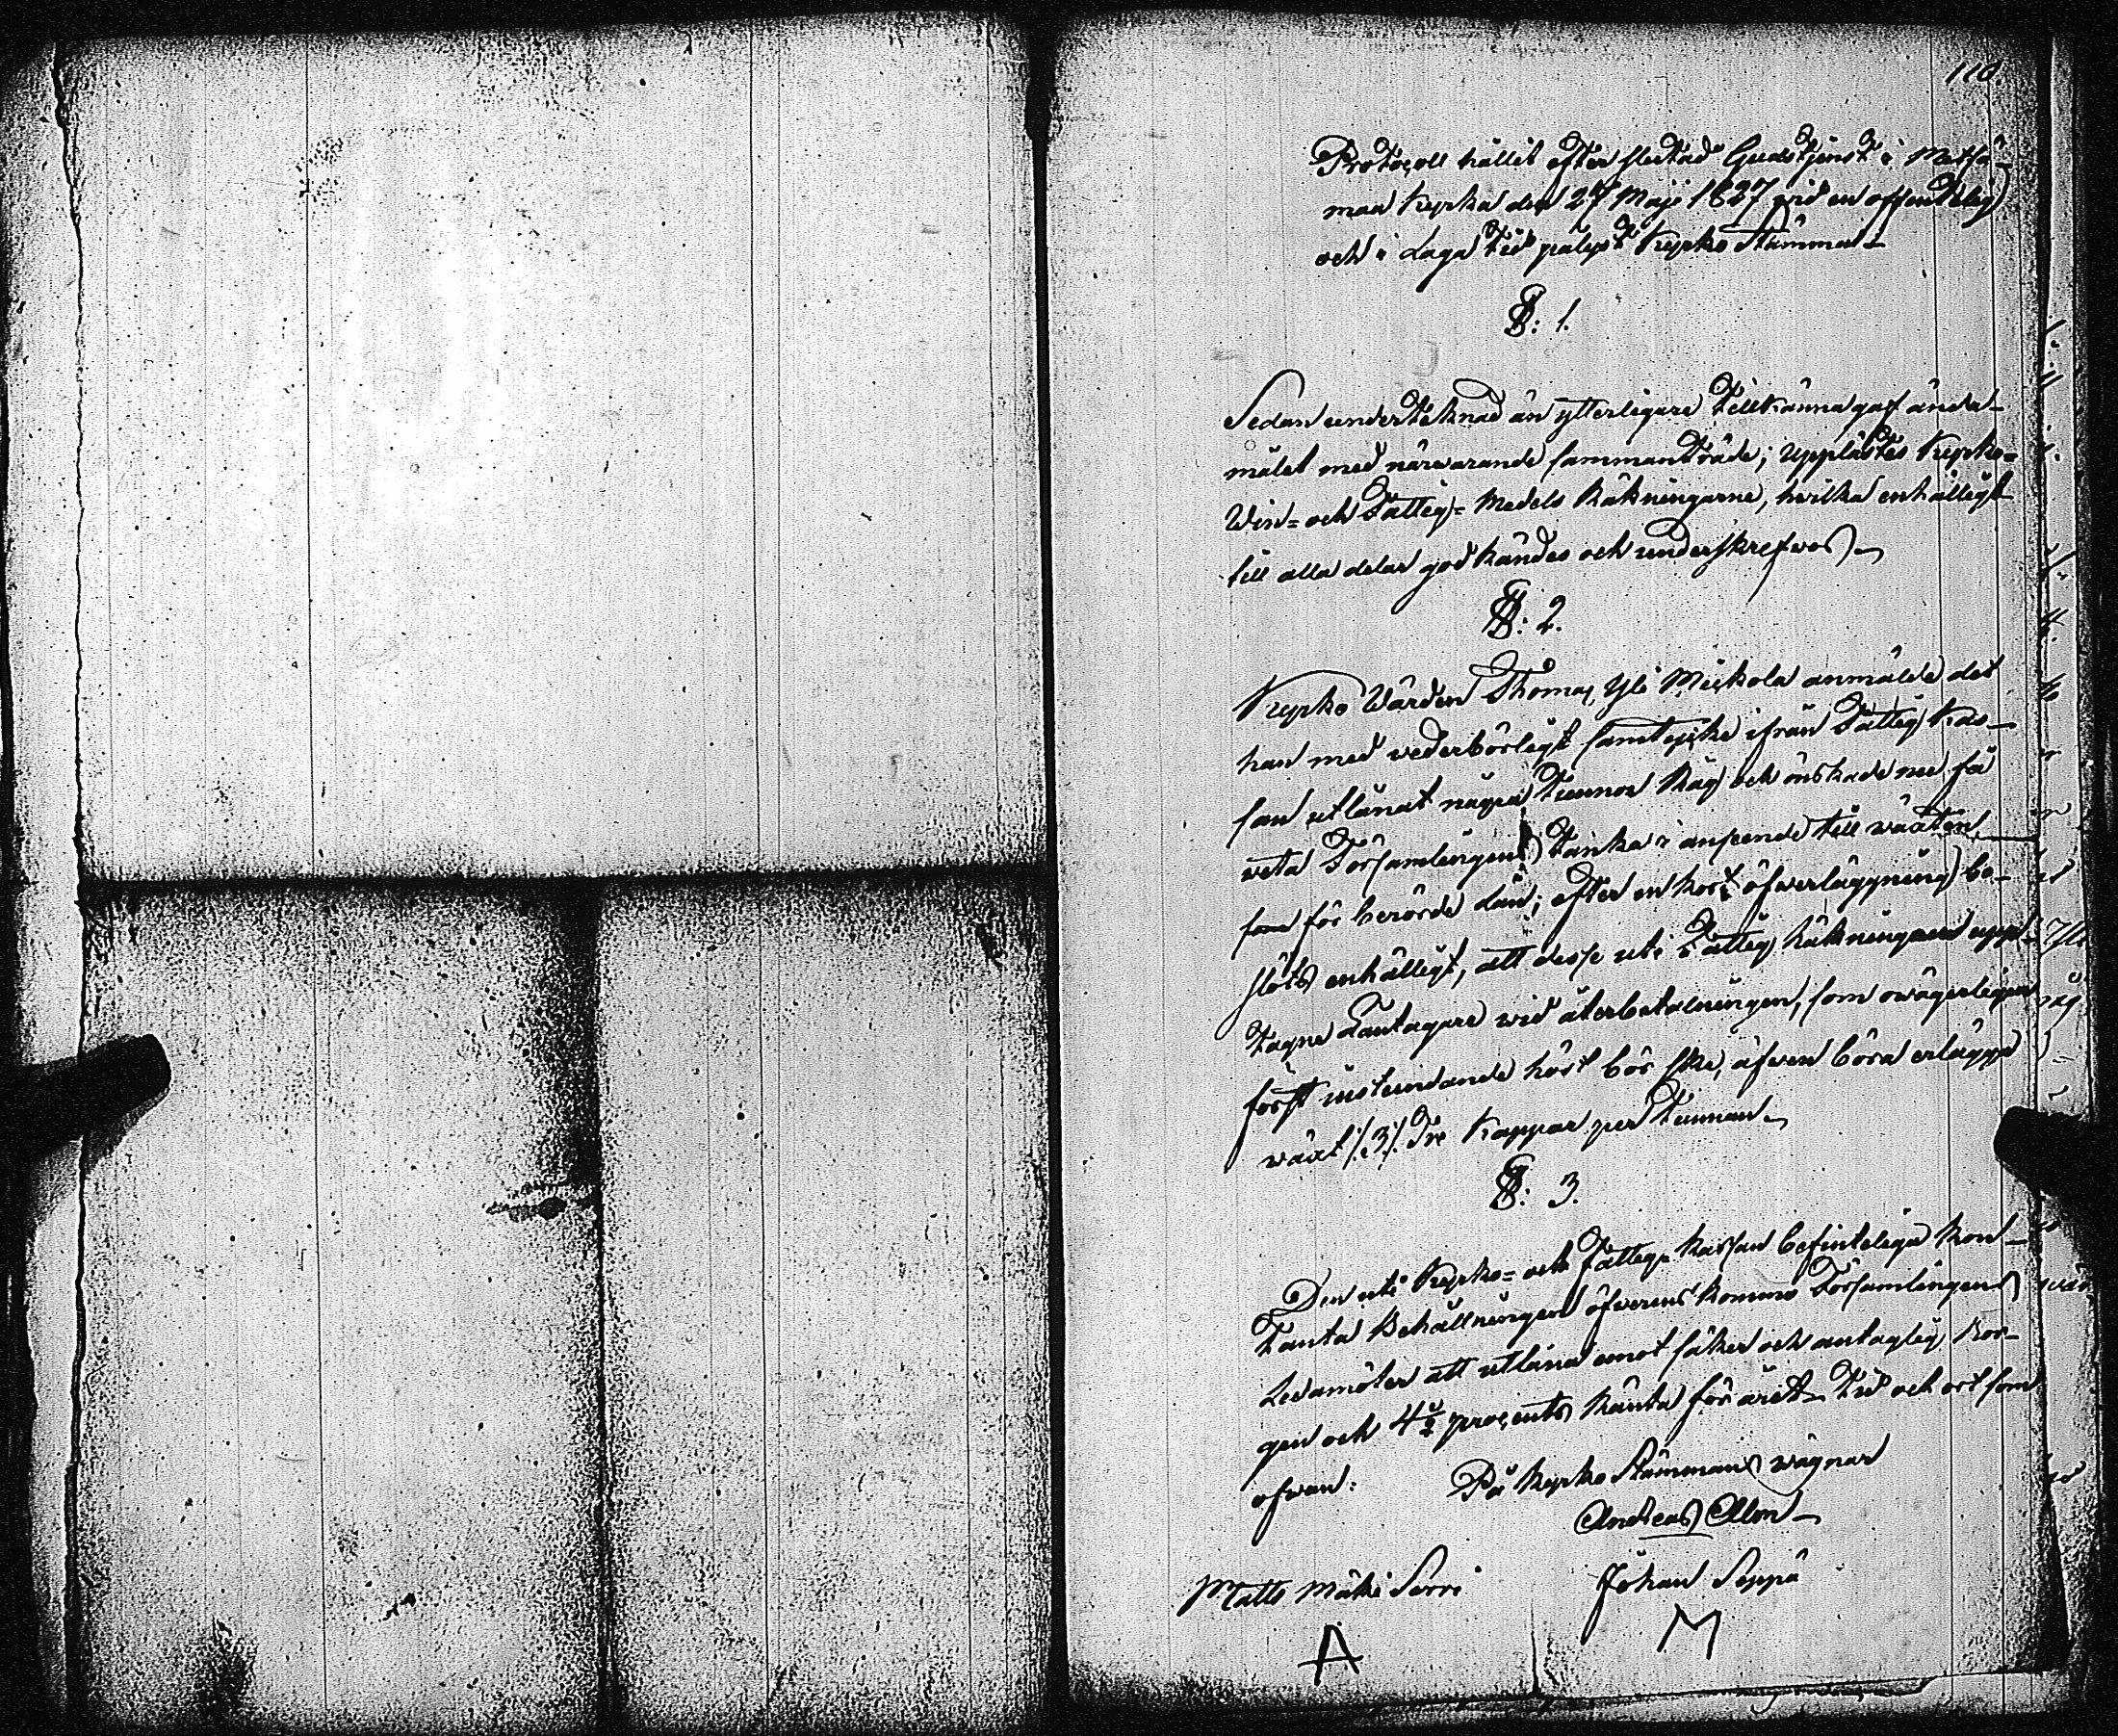 110.
Protocoll hållit efter slutad Gudstjenst i Metsä-
maa Kyrka den 27 Maji 1827 vid en offentelig
och i Laga tid pålyst Kyrko Stämma.
§: 1.
Sedan underteknad än ytterligare tillkänna gaf ända-
målet med närvarande sammanträde; upplästes Kyrko-
Win- och Fattig- Medels Räkningarne, hvilka enhälligt
till alla delar godkändes och underskrefvos.
§: 2.
Kyrko Wärden Thomas Yli Meickola anmälde det
han med vederbörligt samtycke ifrån Fattig Kas-
san utlånat några Tunnor Råg och önskade nu få
veta Församlingens tanka i anseende till växten
för berörde lån; efter en kort öfverläggning be-
slöts enhälligt, att desse uti Fattig Räkningarne upp-
tagne Låntagare vid återbetalningen, som ovägerligen
först instundande höst bör ske, äfven böra erlägga
växt /:3:/ Tre Kappar per Tunnan.
§: 3.
Den uti Kyrko- och Fattig- Kassan befinteliga Kon-
tanta Behållningen öfverens kommo Församlingens
Ledamöter att utlåna emot säker och antaglig Bor-
gen och 4 1/2 procents Ränta för året. Tid och ort som
ofvan:
På Kyrko Stämmans vägnar
Andreas Alm
Matts Mäki Sorri
Johan Seppä
A
M